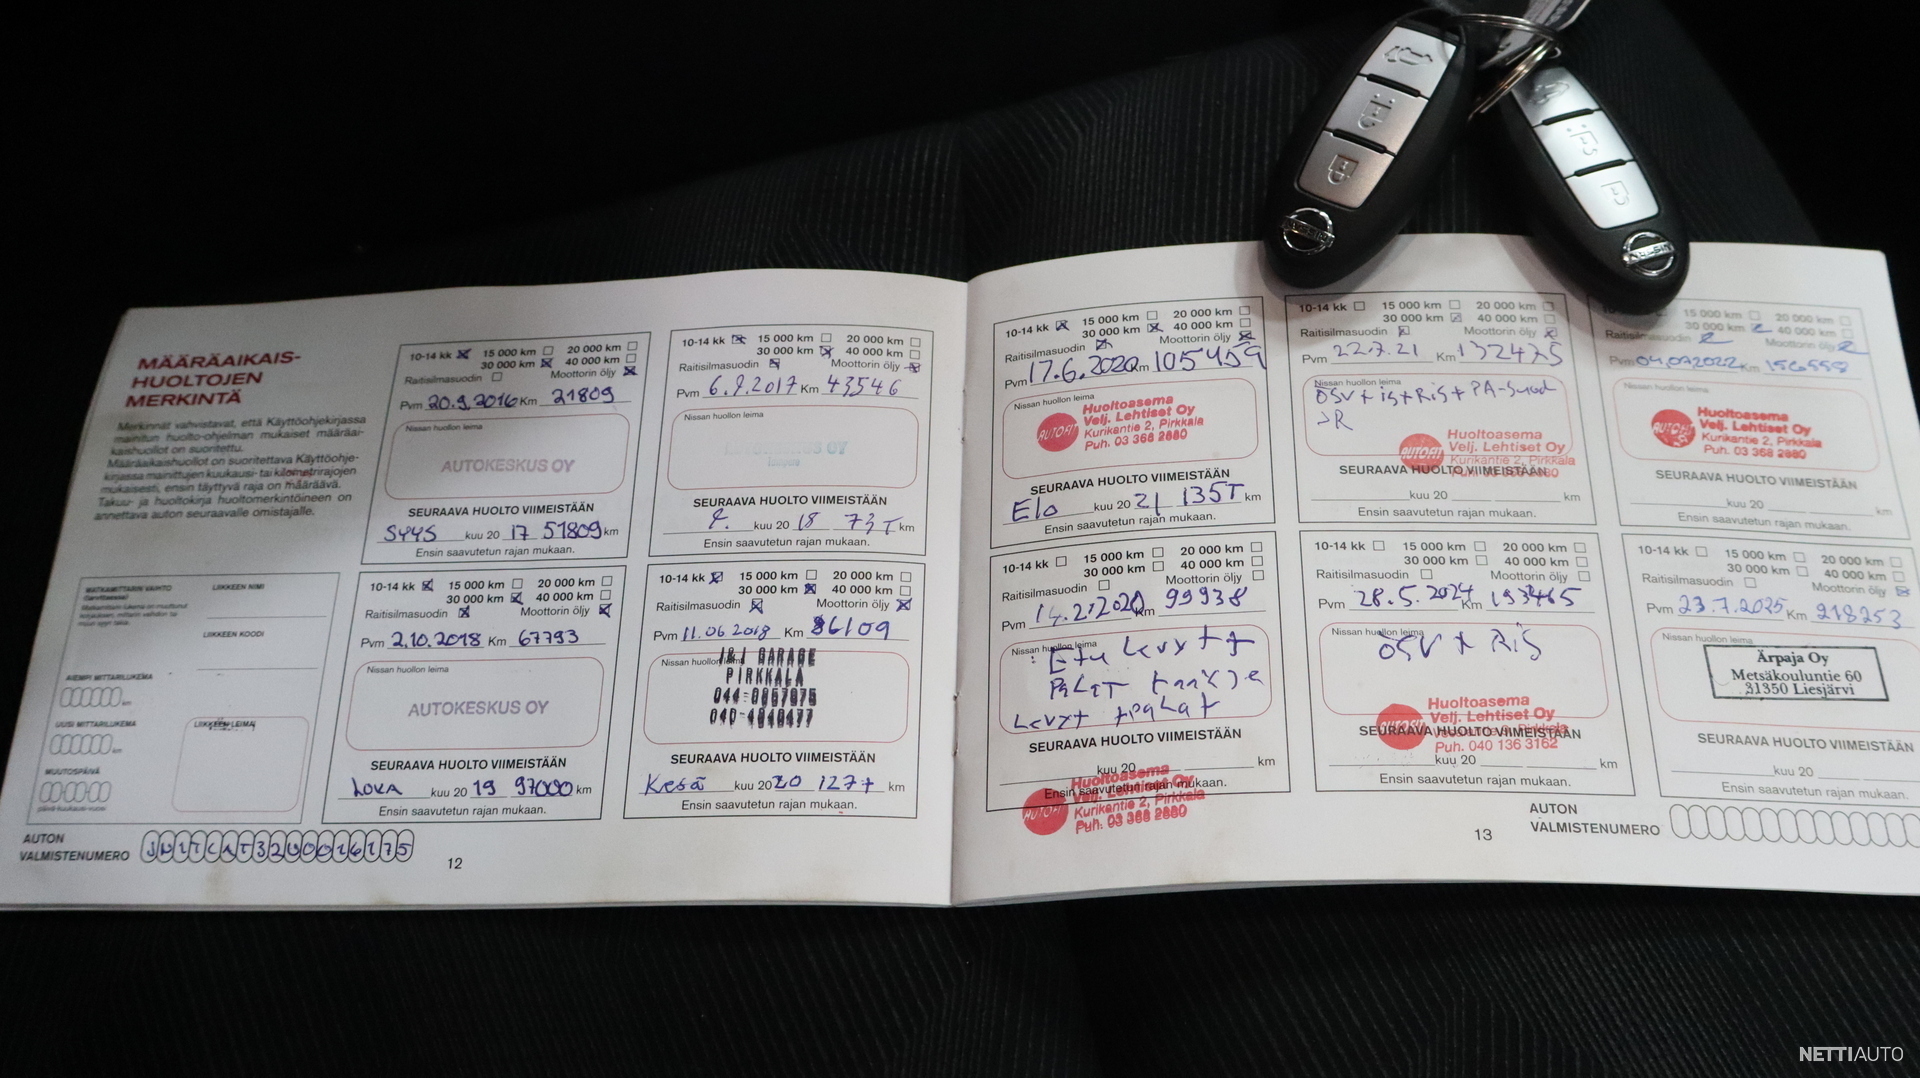 MÄÄRÄAIKAIS-
HUOLTOJEN
MERKINTÄ
Merkinnät vahvistavat, että Käyttöohjekirjassa
mainitun huolto-ohjelman mukaiset määräai-
kaishuollot on suoritettu.
Määräaikaishuollot on suoritettava Käyttöohje-
kirjassa mainittujen kuukausi- tai kilometrirajojen
mukaisesti, ensin täyttyvä raja on määräävä.
Takuu- ja huoltokirja huoltomerkintöineen on
annettava auton seuraavalle omistajalle.
MATKAMITTARIN VAIHTO
(tarvittaessa)
LIIKKEEN NIMI
LIIKKEEN KOODI
AIEMPI MITTARILUKEMA
km
UUSI MITTARILUKEMA
km
MUUTOSPÄIVÄ
LIIKKEEN LEIMA
AUTON
VALMISTENUMERO
10-14 kk 15 000 km 20 000 km
30 000 km 40 000 km
Raitisilmasuodin Moottorin öljy
Pvm 20.9.2016 Km 21809
Nissan huollon leima
AUTOKESKUS OY
SEURAAVA HUOLTO VIIMEISTÄÄN
SYYS kuu 20 17 51809 km
Ensin saavutetun rajan mukaan.
10-14 kk 15 000 km 20 000 km
30 000 km 40 000 km
Raitisilmasuodin Moottorin öljy
Pvm 6.9.2017 Km 43546
Nissan huollon leima
AUTOKESKUS OY
SEURAAVA HUOLTO VIIMEISTÄÄN
kuu 20 18 73 T km
Ensin saavutetun rajan mukaan.
10-14 kk 15 000 km 20 000 km
30 000 km 40 000 km
Raitisilmasuodin Moottorin öljy
Pvm 2.10.2018 Km 67793
Nissan huollon leima
AUTOKESKUS OY
SEURAAVA HUOLTO VIIMEISTÄÄN
LOKA kuu 20 19 97000 km
Ensin saavutetun rajan mukaan.
10-14 kk 15 000 km 20 000 km
30 000 km 40 000 km
Raitisilmasuodin Moottorin öljy
Pvm 11.06 2019 Km 86109
Nissan huollon leima
J&J GARAGE
PIRKKALA
SEURAAVA HUOLTO VIIMEISTÄÄN
Kesä kuu 20 20 127 t km
Ensin saavutetun rajan mukaan.
12
10-14 kk 15 000 km 20 000 km
30 000 km 40 000 km
Raitisilmasuodin Moottorin öljy
Pvm 17.6.2020 Km 105459
Nissan huollon leima
AUTOFIT
Huoltoasema
Velj. Lehtiset Oy
Kurikantie 2, Pirkkala
Puh. 03 368 2880
SEURAAVA HUOLTO VIIMEISTÄÄN
Elo kuu 20 21 135T km
Ensin saavutetun rajan mukaan.
10-14 kk 15 000 km 20 000 km
30 000 km
Raitisilmasuodin Moottorin öljy
Pvm 22.7.21 Km 132475
Nissan huollon leima
ÖSV + is + Ris + PA-suod
AUTOFIT
Huoltoasema
Velj. Lehtiset Oy
Kurikantie 2, Pirkkala
SEURAAVA HUOLTO VIIMEISTÄÄN
kuu 20 km
15 000 km 20 000 km
30 000 km 40 000 km
Raitisilmasuodin Moottorin öljy
Pvm 04.07.2022 Km 156558
Nissan huollon leima
AUTOFIT
Huoltoasema
Velj. Lehtiset Oy
Kurikantie 2, Pirkkala
Puh. 03 368 2880
SEURAAVA HUOLTO VIIMEISTÄÄN
kuu 20 km
10-14 kk 15 000 km 20 000 km
30 000 km 40 000 km
Raitisilmasuodin Moottorin öljy
Pvm 14.2.2020 Km 99938
Nissan huollon leima
Etu Levyt +
Levyt
SEURAAVA HUOLTO VIIMEISTÄÄN
kuu 20 km
Ensin saavutetun rajan mukaan.
AUTOFIT
Huoltoasema
Velj. Lehtiset Oy
Kurikantie 2, Pirkkala
Puh. 03 368 2880
10-14 kk 15 000 km 20 000 km
30 000 km 40 000 km
Raitisilmasuodin Moottorin öljy
Pvm 28.5.2024 Km 193465
Nissan huollon leima
ÖSV + Ris
AUTOFIT
Huoltoasema
Velj. Lehtiset Oy
Puh. 040 136 3162
SEURAAVA HUOLTO VIIMEISTÄÄN
kuu 20 km
Ensin saavutetun rajan mukaan.
10-14 kk 15 000 km 20 000 km
30 000 km 40 000 km
Raitisilmasuodin Moottorin öljy
Pvm 23.7.2025 Km 218253
Nissan huollon leima
Ärpaja Oy
Metsäkouluntie 60
31350 Liesjärvi
SEURAAVA HUOLTO VIIMEISTÄÄN
kuu 20 km
Ensin saavutetun rajan mukaan.
13
AUTON
VALMISTENUMERO
NISSAN
NISSAN
NETTIAUTO